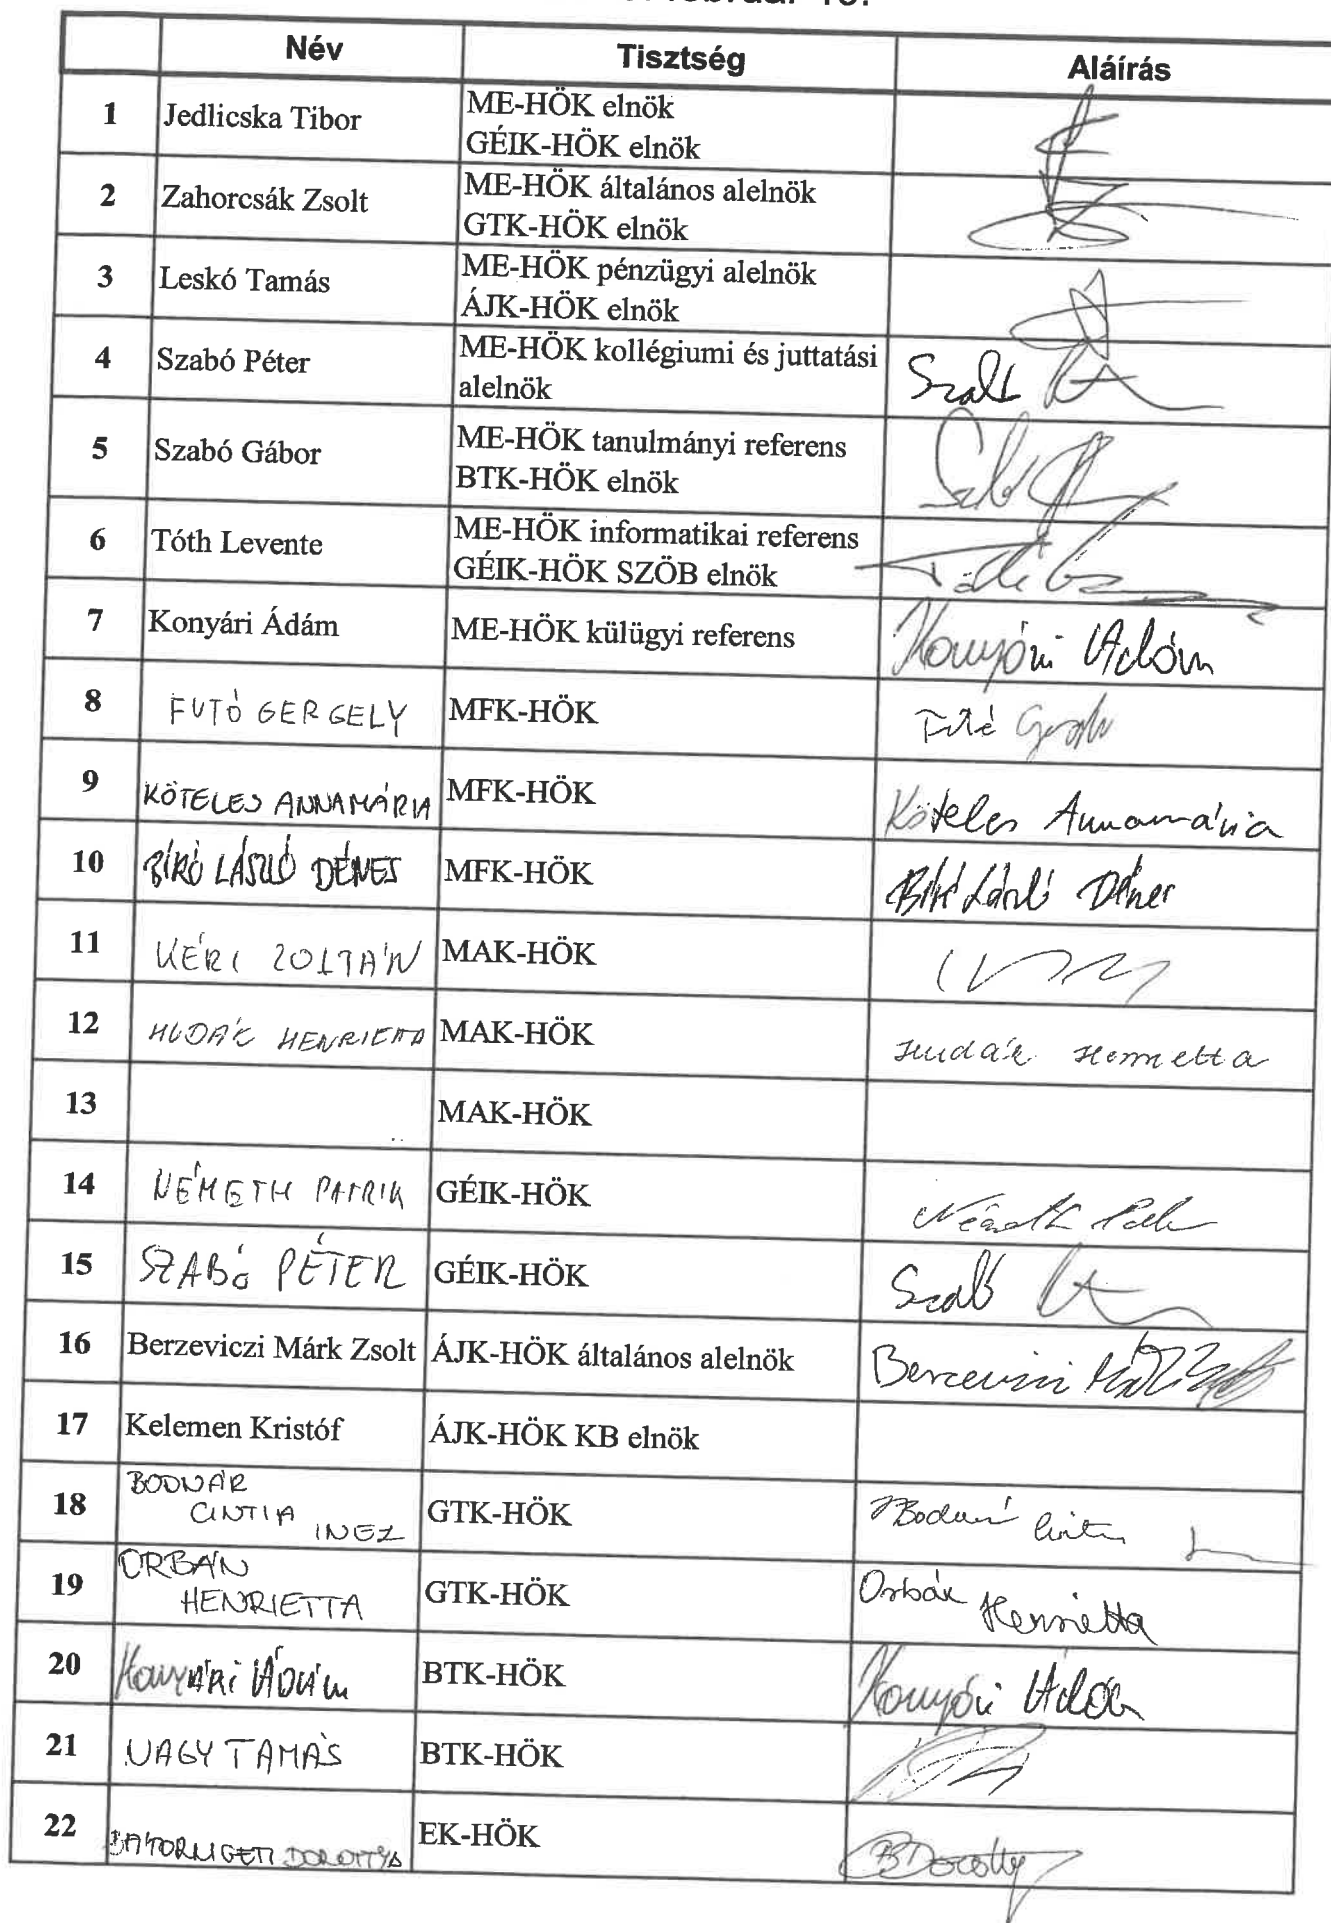 Név Tisztség Aláírás
1 Jedlicska Tibor ME-HÖK elnök
GÉIK-HÖK elnök
2 Zahorcsák Zsolt ME-HÖK általános alelnök
GTK-HÖK elnök
3 Leskó Tamás ME-HÖK pénzügyi alelnök
ÁJK-HÖK elnök
4 Szabó Péter ME-HÖK kollégiumi és juttatási
alelnök
5 Szabó Gábor ME-HÖK tanulmányi referens
BTK-HÖK elnök
6 Tóth Levente ME-HÖK informatikai referens
GÉIK-HÖK SZÖB elnök
7 Konyári Ádám ME-HÖK külügyi referens Konyári Ádám
8 FUTÓ GERGELY MFK-HÖK Futó
9 KÖTELES ANNAMÁRIA MFK-HÖK Köteles Annamária
10 BÍRÓ LÁSZLÓ DÉNES MFK-HÖK Bíró László Dénes
11 KÉRI ZOLTÁN MAK-HÖK
12 HUDÁK HENRIETTA MAK-HÖK Hudák Henrietta
13 MAK-HÖK
14 NÉMETH PATRIK GÉIK-HÖK Németh
15 SZABÓ PÉTER GÉIK-HÖK Szabó
16 Berzeviczi Márk Zsolt ÁJK-HÖK általános alelnök Berzeviczi
17 Kelemen Kristóf ÁJK-HÖK KB elnök
18 BODNÁR
CINTIA
INEZ GTK-HÖK Bodnár
19 ORBÁN
HENRIETTA GTK-HÖK Orbán Henrietta
20 Konyári Ádám BTK-HÖK Konyári Ádám
21 NAGY TAMÁS BTK-HÖK
22 BÁTORLIGETI DOROTTYA EK-HÖK